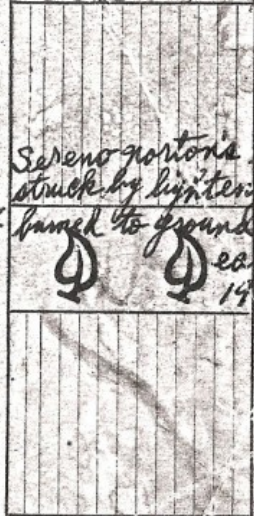 Sereno Norton's
struck by lighten
burned to ground
ea
19